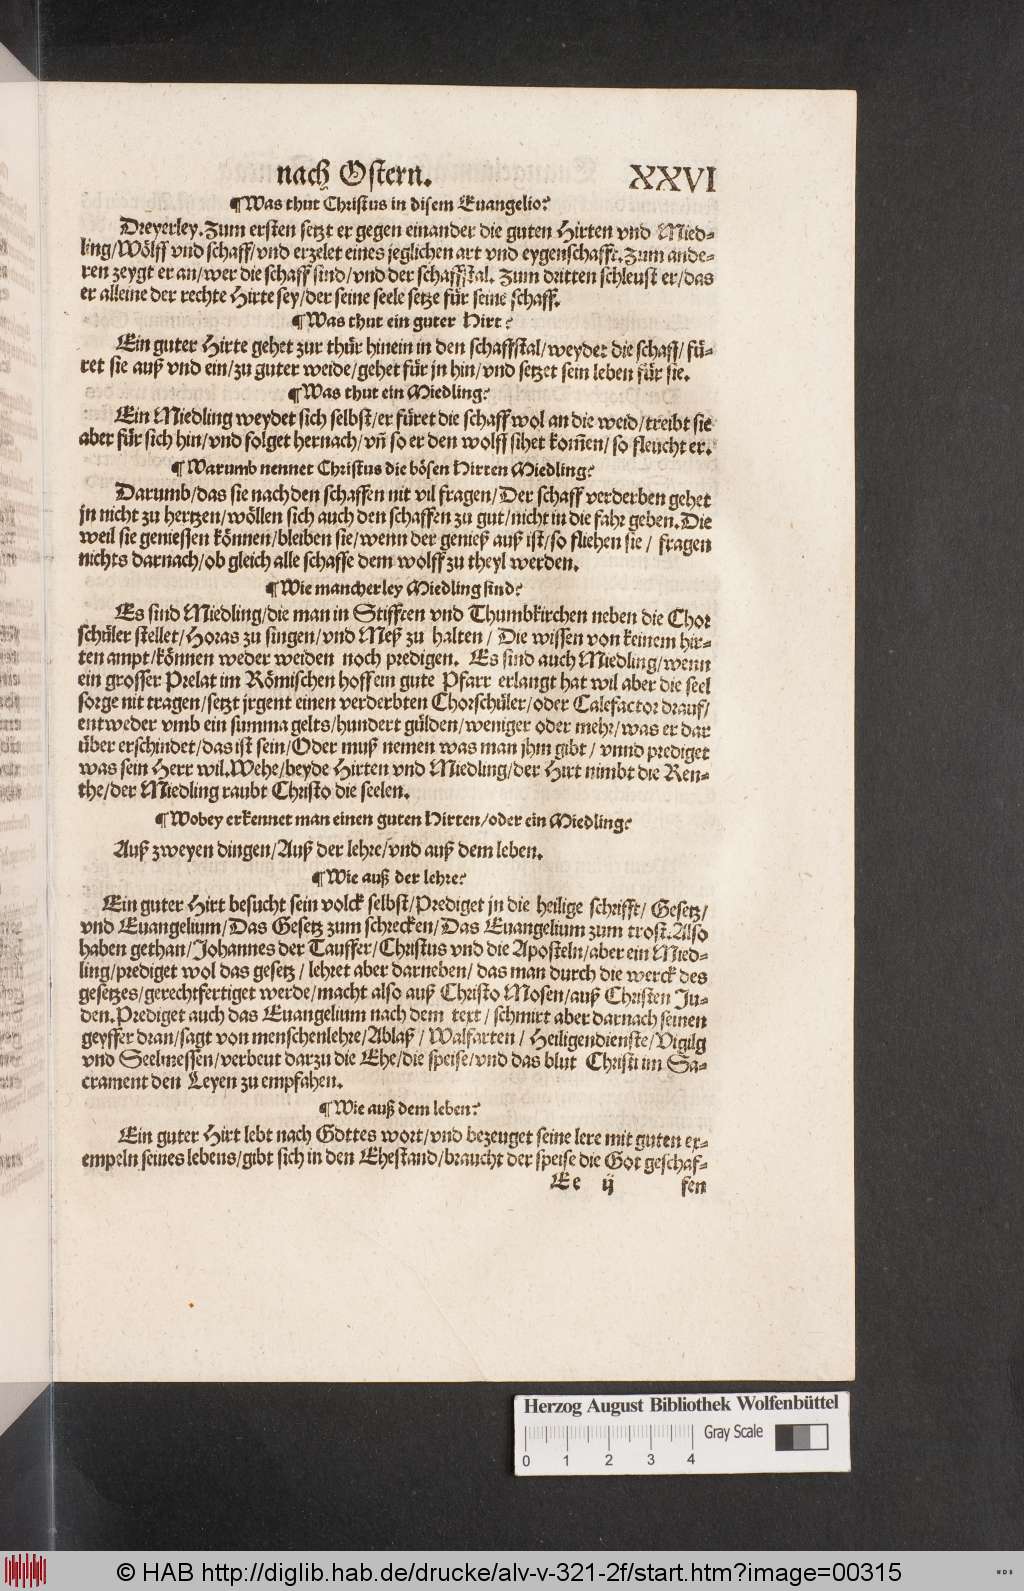 nach Ostern. XXVI
¶Was thut Christus in disem Euangelio?
Dreyerley. Zum ersten setzt er gegen einander die guten Hirten vnd Mied-
ling/Wölff vnd schaff/vnd erzelet eines jeglichen art vnd eygenschafft. Zum ande-
ren zeygt er an/wer die schaff sind/vnd der schaffstal. Zum dritten schleust er/das
er alleine der rechte Hirte sey/der seine seele setze für seine schaff.
¶Was thut ein guter Hirt?
Ein guter Hirte gehet zur thür hinein in den schaffstal/weydet die schaff/ fü-
ret sie auß vnd ein/zu guter weide/gehet für jn hin/vnd setzet sein leben für sie.
¶Was thut ein Miedling?
Ein Miedling weydet sich selbst/er füret die schaff wol an die weid/treibt sie
aber für sich hin/vnd folget hernach/vñ so er den wolff sihet kom̃en/so fleucht er.
¶Warumb nennet Christus die bösen Hirten Miedling?
Darumb/das sie nach den schaffen nit vil fragen/Der schaff verderben gehet
jn nicht zu hertzen/wöllen sich auch den schaffen zu gut/nicht in die fahr geben. Die
weil sie geniessen können/bleiben sie/wenn der genieß auß ist/so fliehen sie/ fragen
nichts darnach/ob gleich alle schaffe dem wolff zu theyl werden.
¶Wie mancherley Miedling sind?
Es sind Miedling/die man in Stifften vnd Thumbkirchen neben die Chor
schüler stellet/Horas zu singen/vnd Meß zu halten/ Die wissen von keinem hir-
ten ampt/können weder weiden noch predigen. Es sind auch Miedling/wenn
ein grosser Prelat im Römischen hoff ein gute Pfarr erlangt hat wil aber die seel
sorge nit tragen/setzt jrgent einen verderbten Chorschüler/oder Calefactor drauf/
entweder vmb ein summa gelts/hundert gülden/weniger oder mehr/was er dar
über erschindet/das ist sein/Oder muß nemen was man jhm gibt/ vnnd prediget
was sein Herr wil. Wehe/beyde Hirten vnd Miedling/der Hirt nimbt die Ren-
the/der Miedling raubt Christo die seelen.
¶Wobey erkennet man einen guten Hirten/oder ein Miedling?
Auß zweyen dingen/Auß der lehre/vnd auß dem leben.
¶Wie auß der lehre?
Ein guter Hirt besucht sein volck selbst/Prediget jn die heilige schrifft/ Gesetz/
vnd Euangelium/Das Gesetz zum schrecken/Das Euangelium zum trost. Also
haben gethan/Johannes der Tauffer/Christus vnd die Aposteln/aber ein Mied-
ling/prediget wol das gesetz/ lehret aber darneben/ das man durch die werck des
gesetzes/gerechtfertiget werde/macht also auß Christo Mosen/auß Christen Ju-
den. Prediget auch das Euangelium nach dem text/ schmirt aber darnach seinen
geyffer dran/sagt von menschenlehre/Ablaß/ Walfarten/ Heiligendienste/Vigilg
vnd Seelmessen/verbeut darzu die Ehe/die speise/vnd das blut Christi im Sa-
crament den Leyen zu empfahen.
¶Wie auß dem leben?
Ein guter Hirt lebt nach Gottes wort/vnd bezeuget seine lere mit guten ex-
empeln seines lebens/gibt sich in den Ehestand/braucht der speise die Got geschaf-
Ee ij fen
Herzog August Bibliothek Wolfenbüttel
Gray Scale
0 1 2 3 4
© HAB http://diglib.hab.de/drucke/alv-v-321-2f/start.htm?image=00315